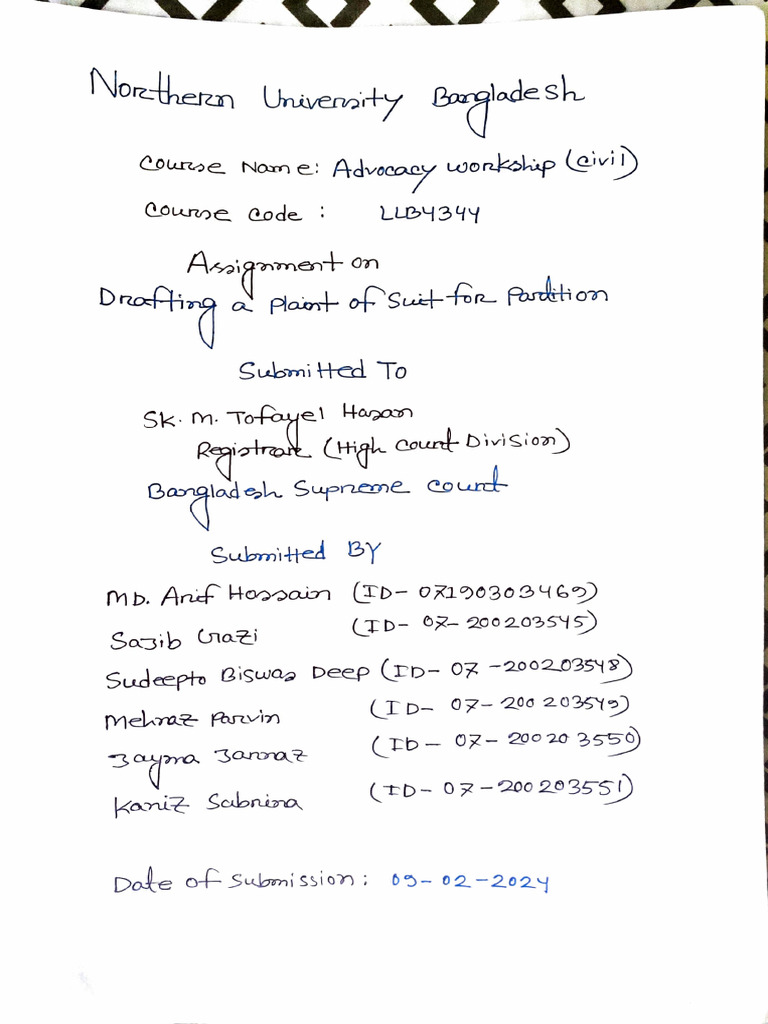 Northern University Bangladesh
Course Name: Advocacy workship (civil)
Course code : LLB4344
Assignment on
Drafting a plaint of Suit for Pardition
Submitted To
Sk. M. Tofayel Hasan
Registrar (High Court Division)
Bangladesh Supreme Court
Submitted BY
MD. Arif Hossain (ID- 07190303469)
Sajib Gazi (ID- 07-200203545)
Sudeepto Biswas Deep (ID- 07 -200203548)
Mehnaz Parvin (ID- 07-200203549)
Jayma Jannaz (ID- 07-200203550)
Kaniz Sabrina (ID- 07-200203551)
Date of Submission: 09-02-2024